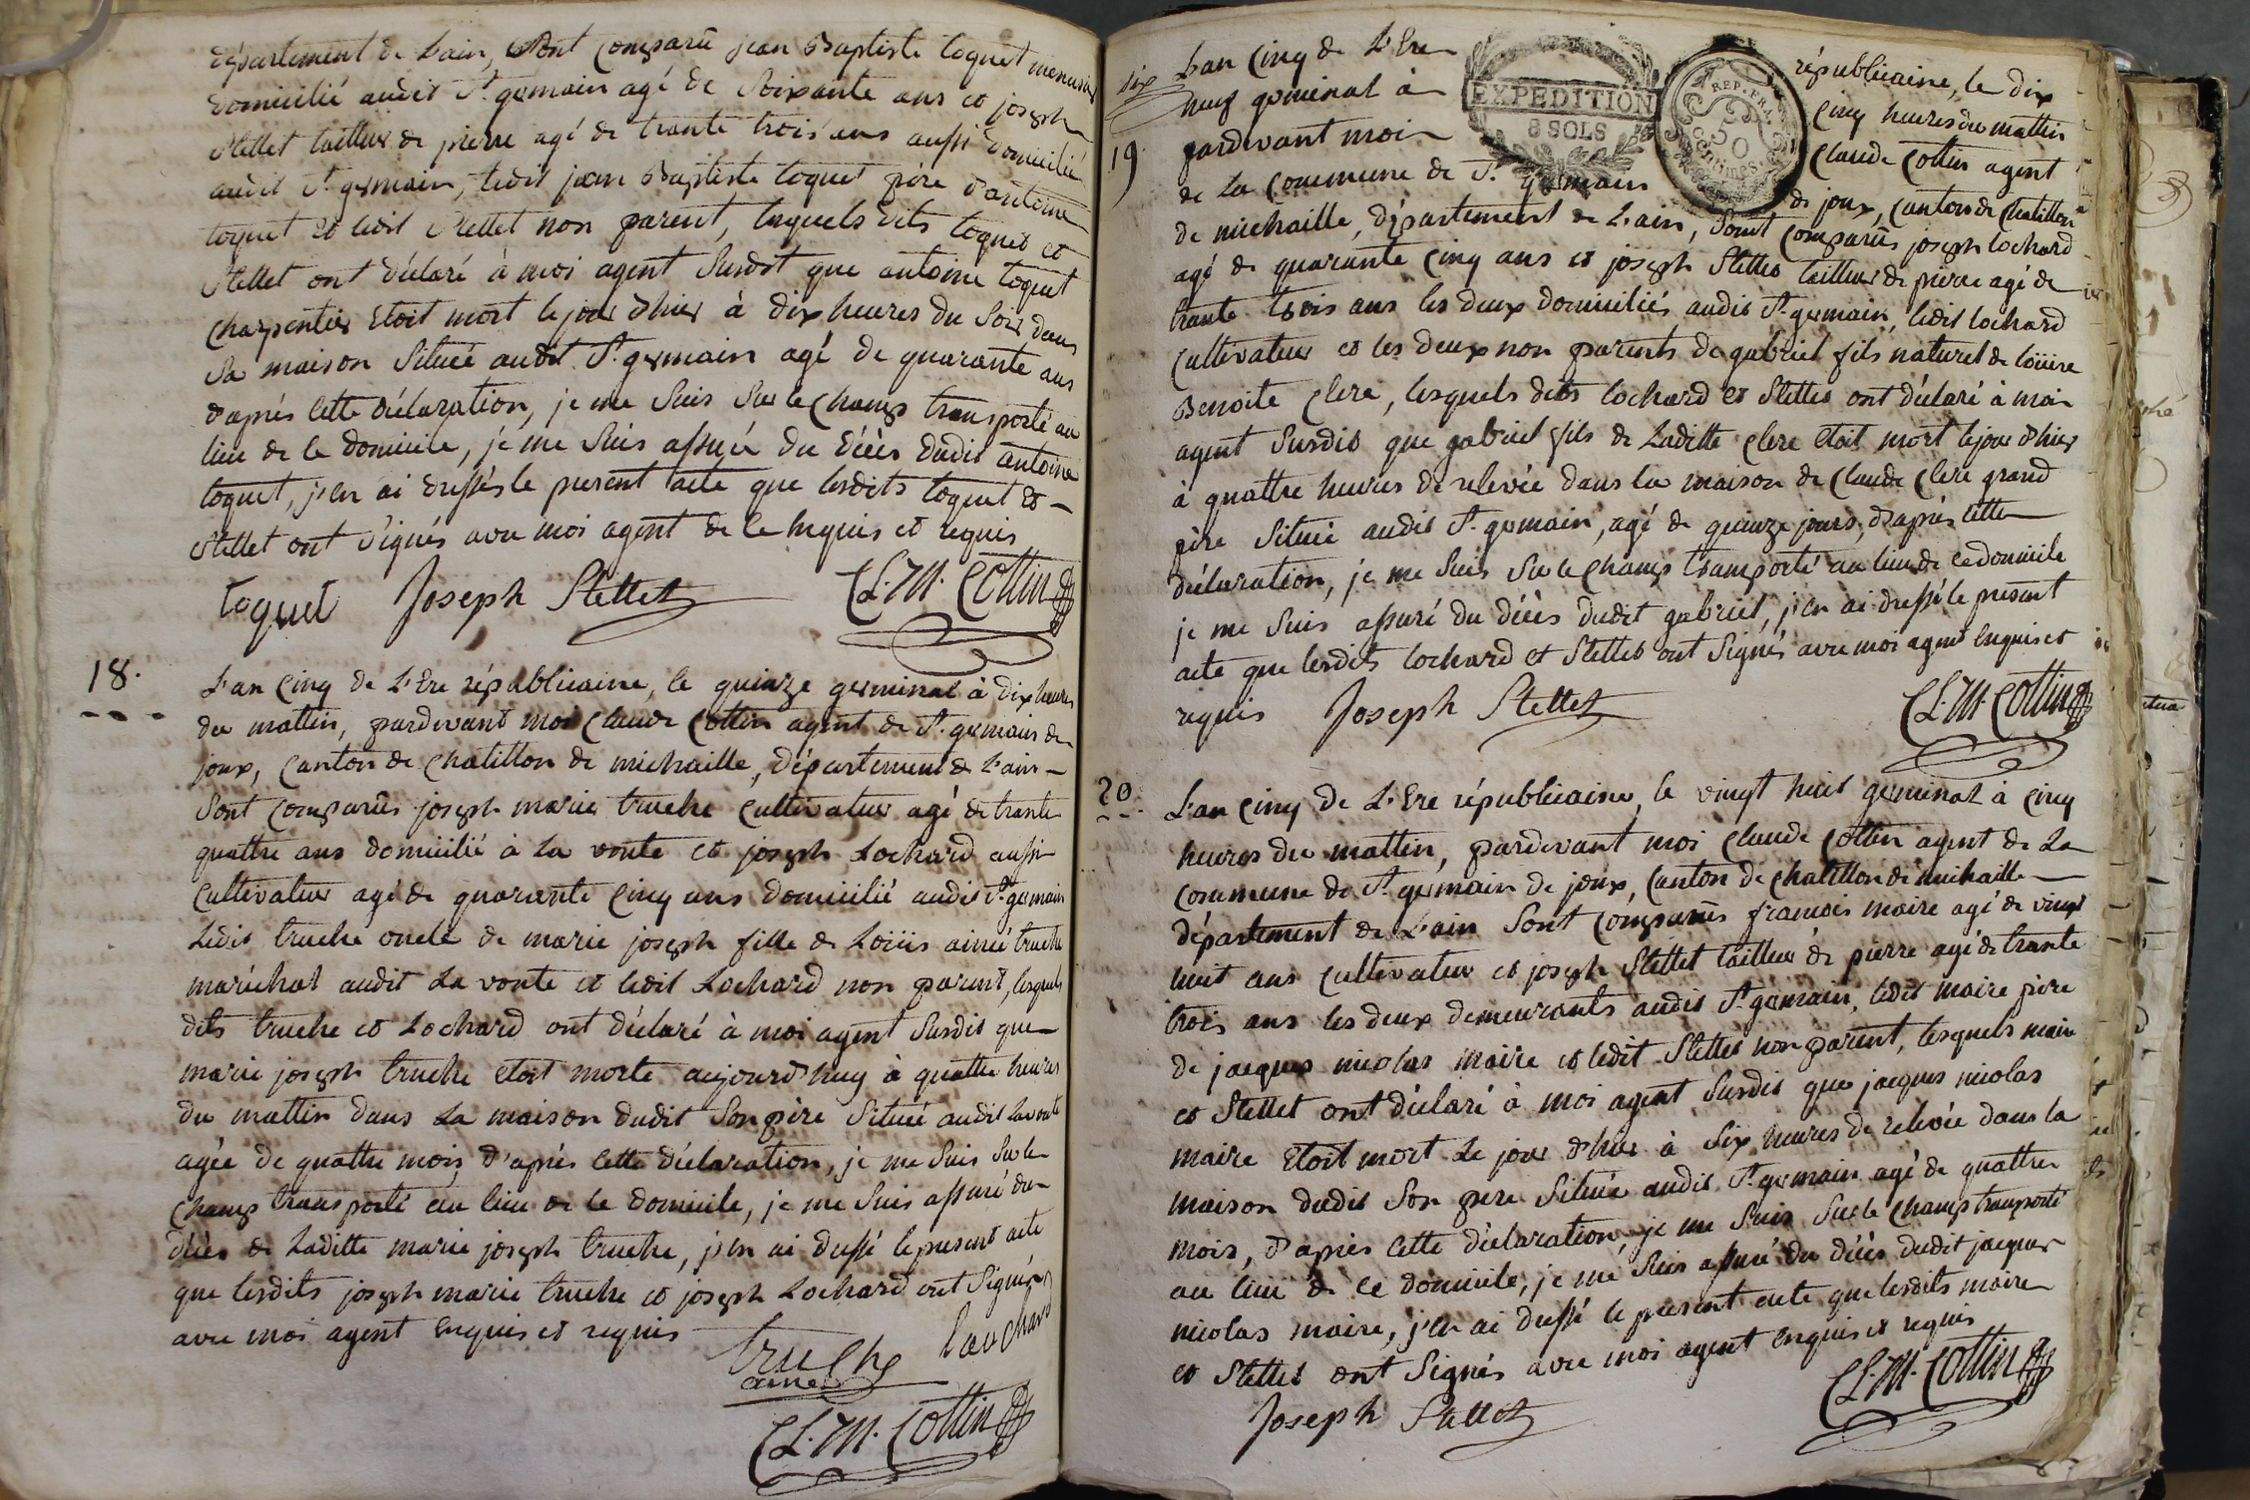 département de L'ain, sont comparu jean Baptiste toquet menuisier
domicilié audit St. germain agé de soixante ans et joseph
Stettet tailleur de pierre agé de trante trois ans aussi domicilié
audit St. germain, ledit jean Baptiste toquet père d'antoine
toquet et ledit Stettet non parent, lesquels dits toquet et
Stettet ont déclaré à moi agent susdit que antoine toquet
charpentier etoit mort le jour d'hier à dix heures du soir dans
sa maison située audit St. germain agé de quarante ans
d'après cette déclaration, je me suis sur le champ transporté au
lieu de ce domicile, je me suis assuré du décès dudit antoine
toquet, j'en ai dressés le present acte que lesdits toquet et
Stettet ont signés avec moi agent de ce enquis et requis
toquet Joseph Stettet CL. M. Cottin
18.
L'an cinq de L'Ere républicaine, le quinze germinal à dix heures
du mattin, pardevant moi claude Cottin agent de St. germain de
joux, canton de chatillon de michaille, département de L'ain
sont comparus joseph marie truche cultivateur agé de trante
quattre ans domicilié à La voute et joseph Lochard aussi
cultivateur agé de quarante cinq ans domicilié audit St. germain
Ledit truche oncle de marie joseph fille de Loüis ainé truche
maréchal audit La voute et ledit Lochard non parent, lesquels
dits truche et Lochard ont déclaré à moi agent susdit que
marie joseph truche etoit morte aujourd'huy à quattre heures
du mattin dans La maison dudit son père située audit La voute
agée de quattre mois, d'après cette déclaration, je me suis sur le
champ transporté au lieu de ce domicile, je me suis assuré du
décès de Laditte marie joseph truche, j'en ai dressé le present acte
que lesdits joseph marie truche et joseph Lochard ont signés
avec moi agent enquis et requis
truche lauchard
ainé
CL. M. Cottin
dix
19
L'an cinq de L'Ere républicaine, le dix
neuf germinal à cinq heures du mattin
pardevant moi claude Cottin agent
de La commune de St. germain de joux, canton de chatillon
de michaille, département de L'ain, sont comparus joseph lochard
agé de quarante cinq ans et joseph Stettet tailleur de pierre agé de
trante trois ans les deux domiciliés audit St. germain, ledit lochard
cultivateur et les deux non parents de gabriel fils naturel de loüise
Benoite clere, lesquels dits lochard et Stettet ont déclaré à moi
agent susdit que gabriel fils de Laditte clere etoit mort le jour d'hier
à quattre heures de relevée dans la maison de claude clere grand
père située audit St. germain, agé de quinze jours, d'après cette
déclaration, je me suis sur le champ transporté au lieu de ce domicile
je me suis assuré du décès dudit gabriel, j'en ai dressé le present
acte que lesdits lochard et Stettet ont signés avec moi agent enquis et
requis Joseph Stettet CL. M. Cottin
EXPEDITION
8 SOLS
REP. FRA.
50
centimes
20.
L'an cinq de L'Ere républicaine, le vingt huit germinal à cinq
heures du mattin, pardevant moi claude Cottin agent de La
commune de St. germain de joux, canton de chatillon de michaille
département de L'ain sont comparus francois maire agé de vingt
huit ans cultivateur et joseph Stettet tailleur de pierre agé de trante
trois ans les deux demeurants audit St. germain, ledit maire père
de jacques nicolas maire et ledit Stettet non parent, lesquels maire
et Stettet ont déclaré à moi agent susdit que jacques nicolas
maire etoit mort Le jour d'hier à six heures de relevée dans la
maison dudit son pere située audit St. germain agé de quattre
mois, d'après cette déclaration, je me suis sur le champ transporté
au lieu de ce domicile, je me suis assuré du décès dudit jacques
nicolas maire, j'en ai dressé le present acte que lesdits maire
et Stettet ont signés avec moi agent enquis et requis
Joseph Stettet CL. M. Cottin